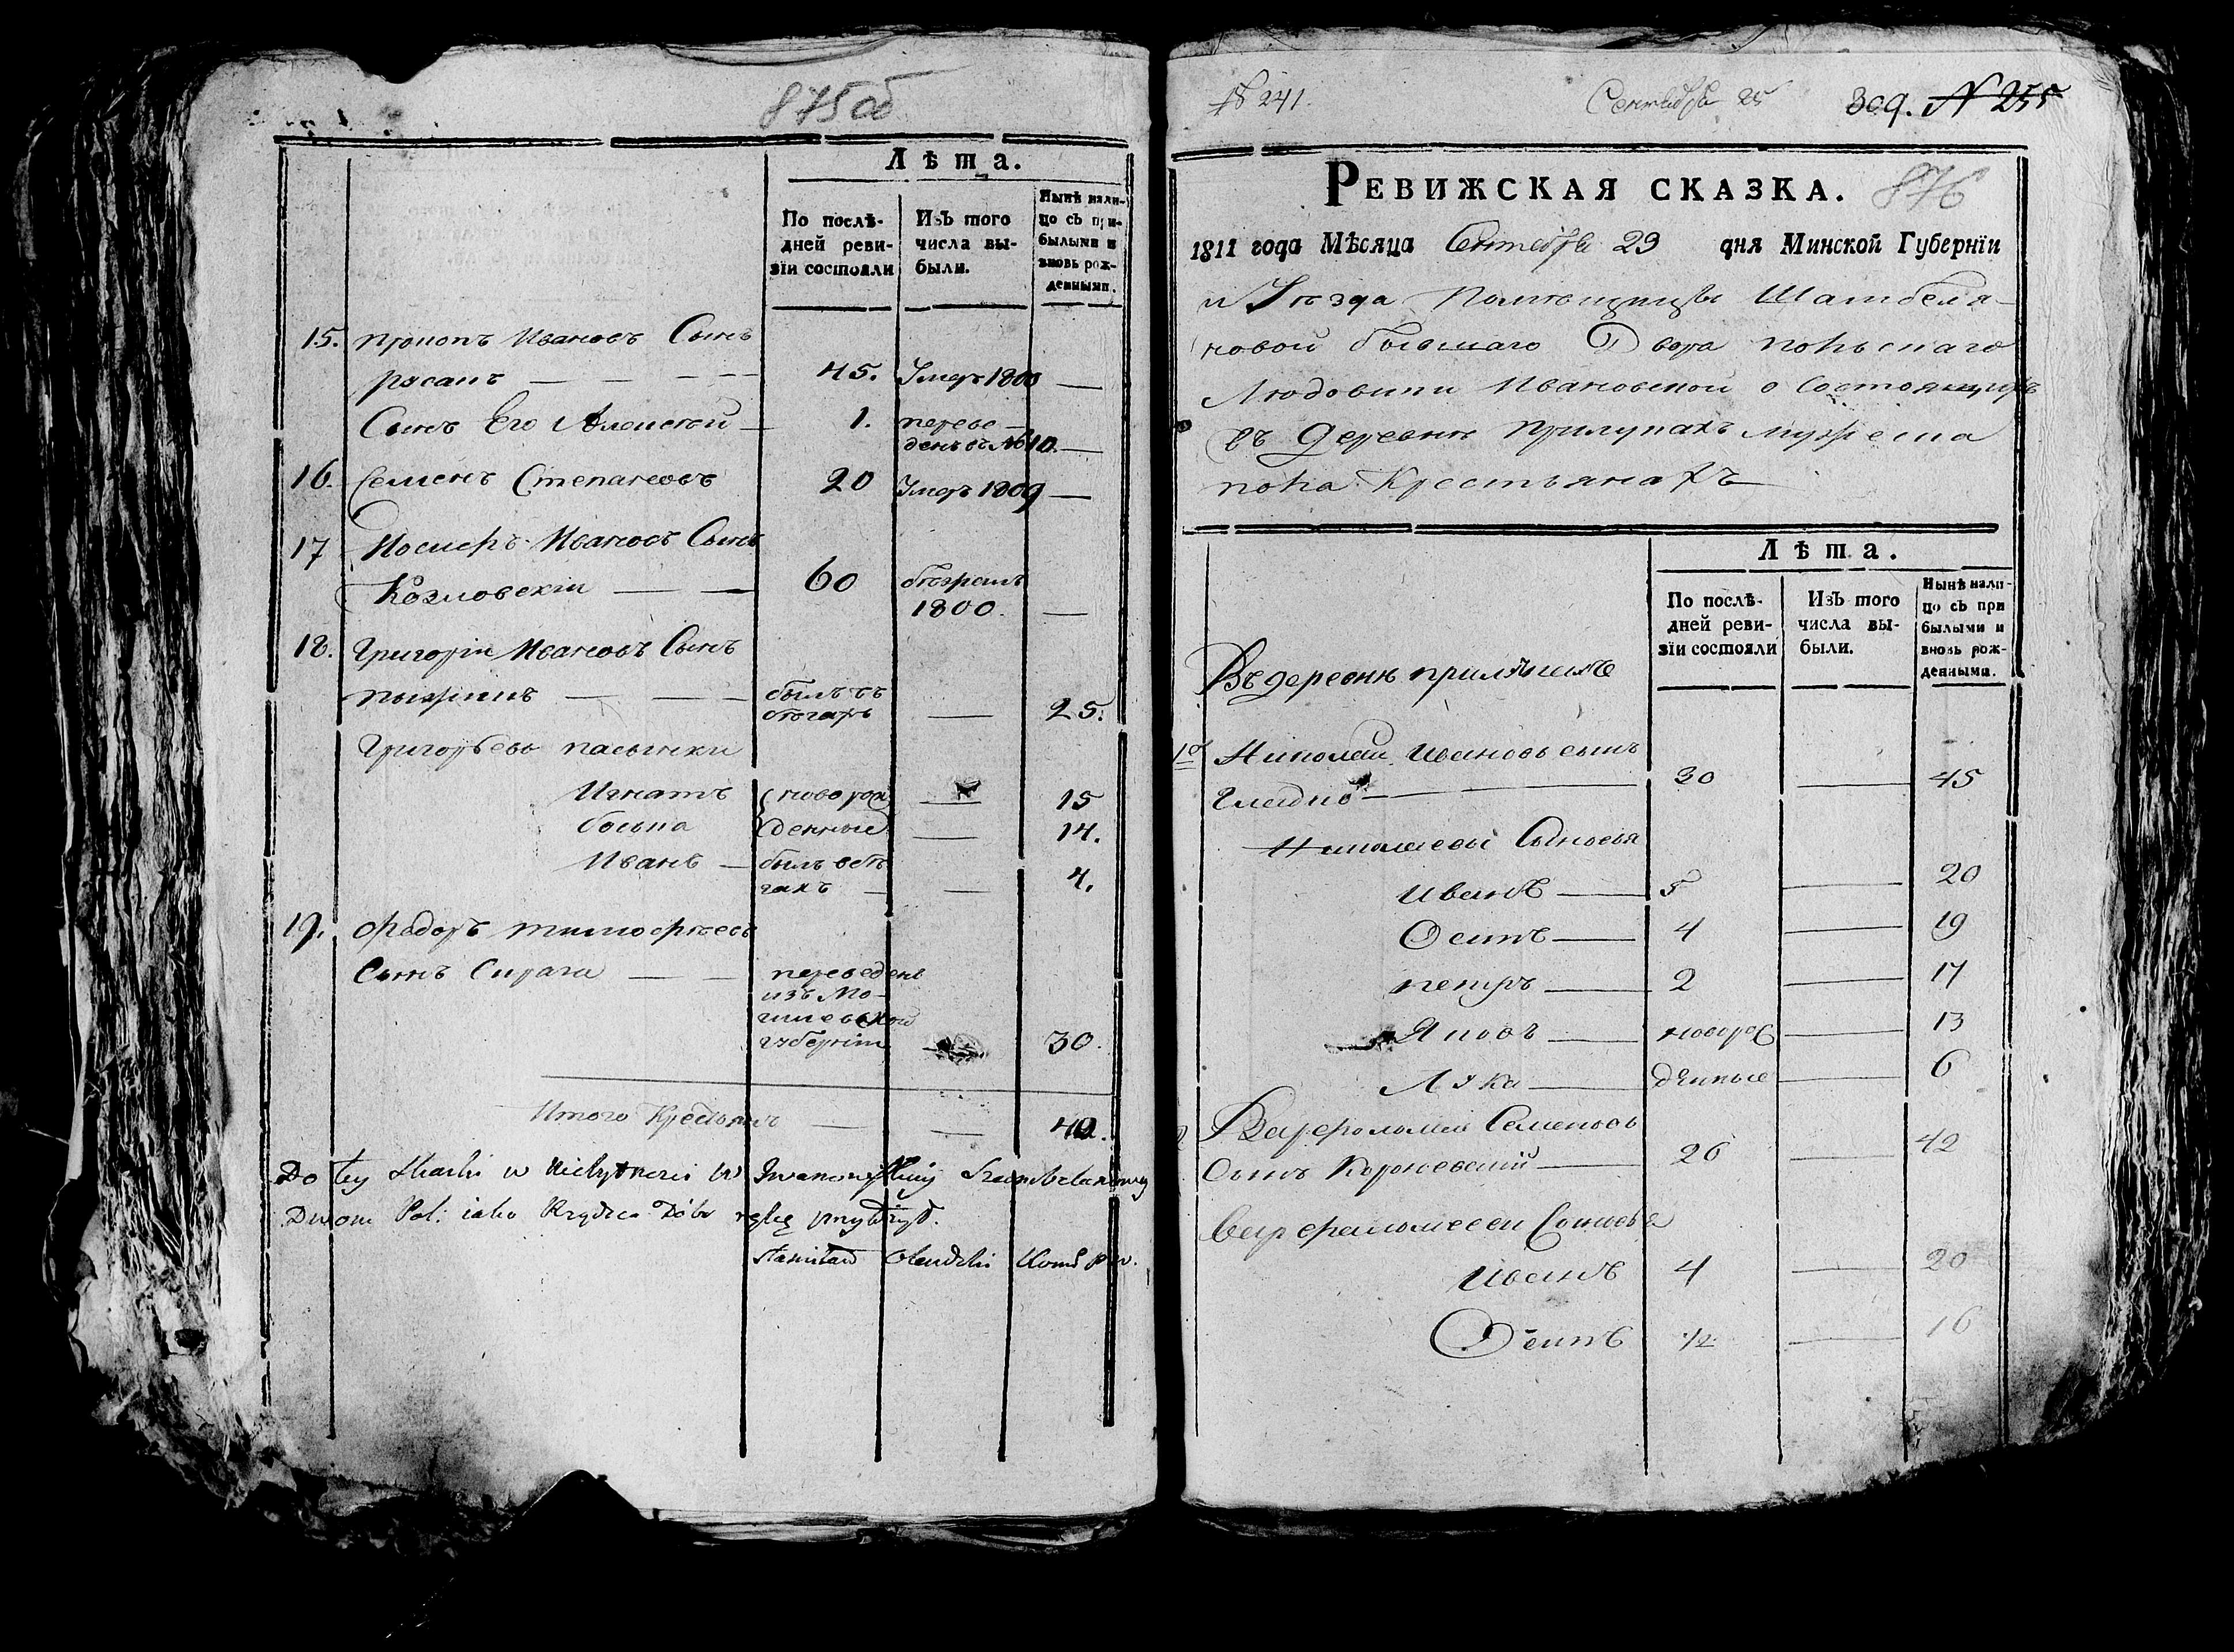 875об
Лѣта.
По послѣ-
дней реви-
зіи состояли
Изъ того
числа вы-
были.
Нынѣ нали-
цо съ при-
былыми и
вновь рож-
денными.
15. Прокопъ Ивановъ Сынъ
45. Умеръ 1800 —
Сынъ Его Алексей — 1. переве-
денъ въ № 10. —
16. Семенъ Степановъ 20 Умеръ 1809 —
17 Иосифъ Ивановъ Сынъ
Козловскіи — — 60 бежалъ
1800. —
18. Григоріи Ивановъ Сынъ
былъ въ
бѣгахъ — 25.
Григорьевы пасынки
Игнатъ новорож — 15
денные — 14.
Иванъ — былъ въ бѣ
гахъ — — 4.
19. Федоръ Тимофѣевъ
Сынъ — — переведенъ
изъ Мо-
гилевской
губерніи — 30.
Итого Крестьянъ — — 40.
Do tey Skazki w W Iwanowskiey Szambelanowey
Dworu Pol: iako Rządca Dóbr rękę
Stanisław
№ 241. Сентября 25 309. N 255
Ревижская сказка. 876
1811 года Мѣсяца Сентября 29 дня Минской Губерніи
и Уезда Помѣщицы Шамбеля-
новой бывшаго Двора польскаго
Людовики Ивановской о Состоящихъ
въ деревне Прилукахъ мужеска
пола Крестьянахъ
Лѣта.
По послѣ-
дней реви-
зіи состояли
Изъ того
числа вы-
были.
Нынѣ нали-
цо съ при
былыми и
вновь рож-
денными.
Въ деревне
1й Николай Ивановъ сынъ
30 — 45
Николаевы Сыновья
Иванъ — 5 — 20
Осипъ — 4 — 19
петръ — 2 — 17
Яковъ — новоро — 13
Лука — жденные — 6
Варфоломей Семеновъ
Сынъ — 26 — 42
Варфоломееви Сыновья
Иванъ 4 — 20
Осипъ 1/2 — 16